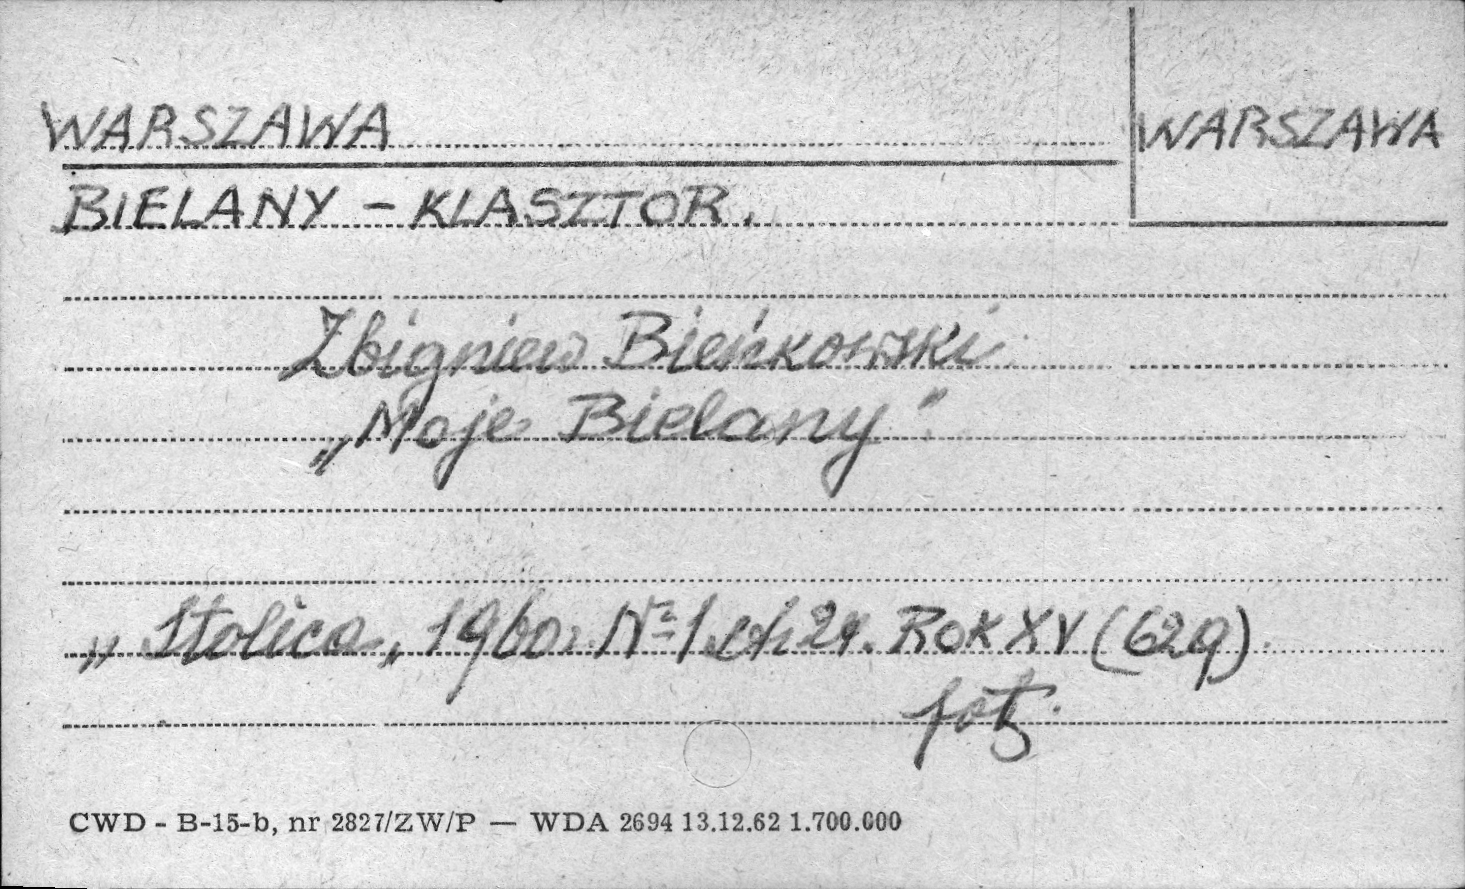 WARSZAWA
WARSZAWA
BIELANY – KLASZTOR.
Zbigniew Bieńkowski
„Moje Bielany"
„Stolica„ 1960r. Nr 1 str. 24. ROK XV (629).
fot.
CWD - B-15-b, nr 2827/ZW/P — WDA 2694 13.12.62 1.700.000